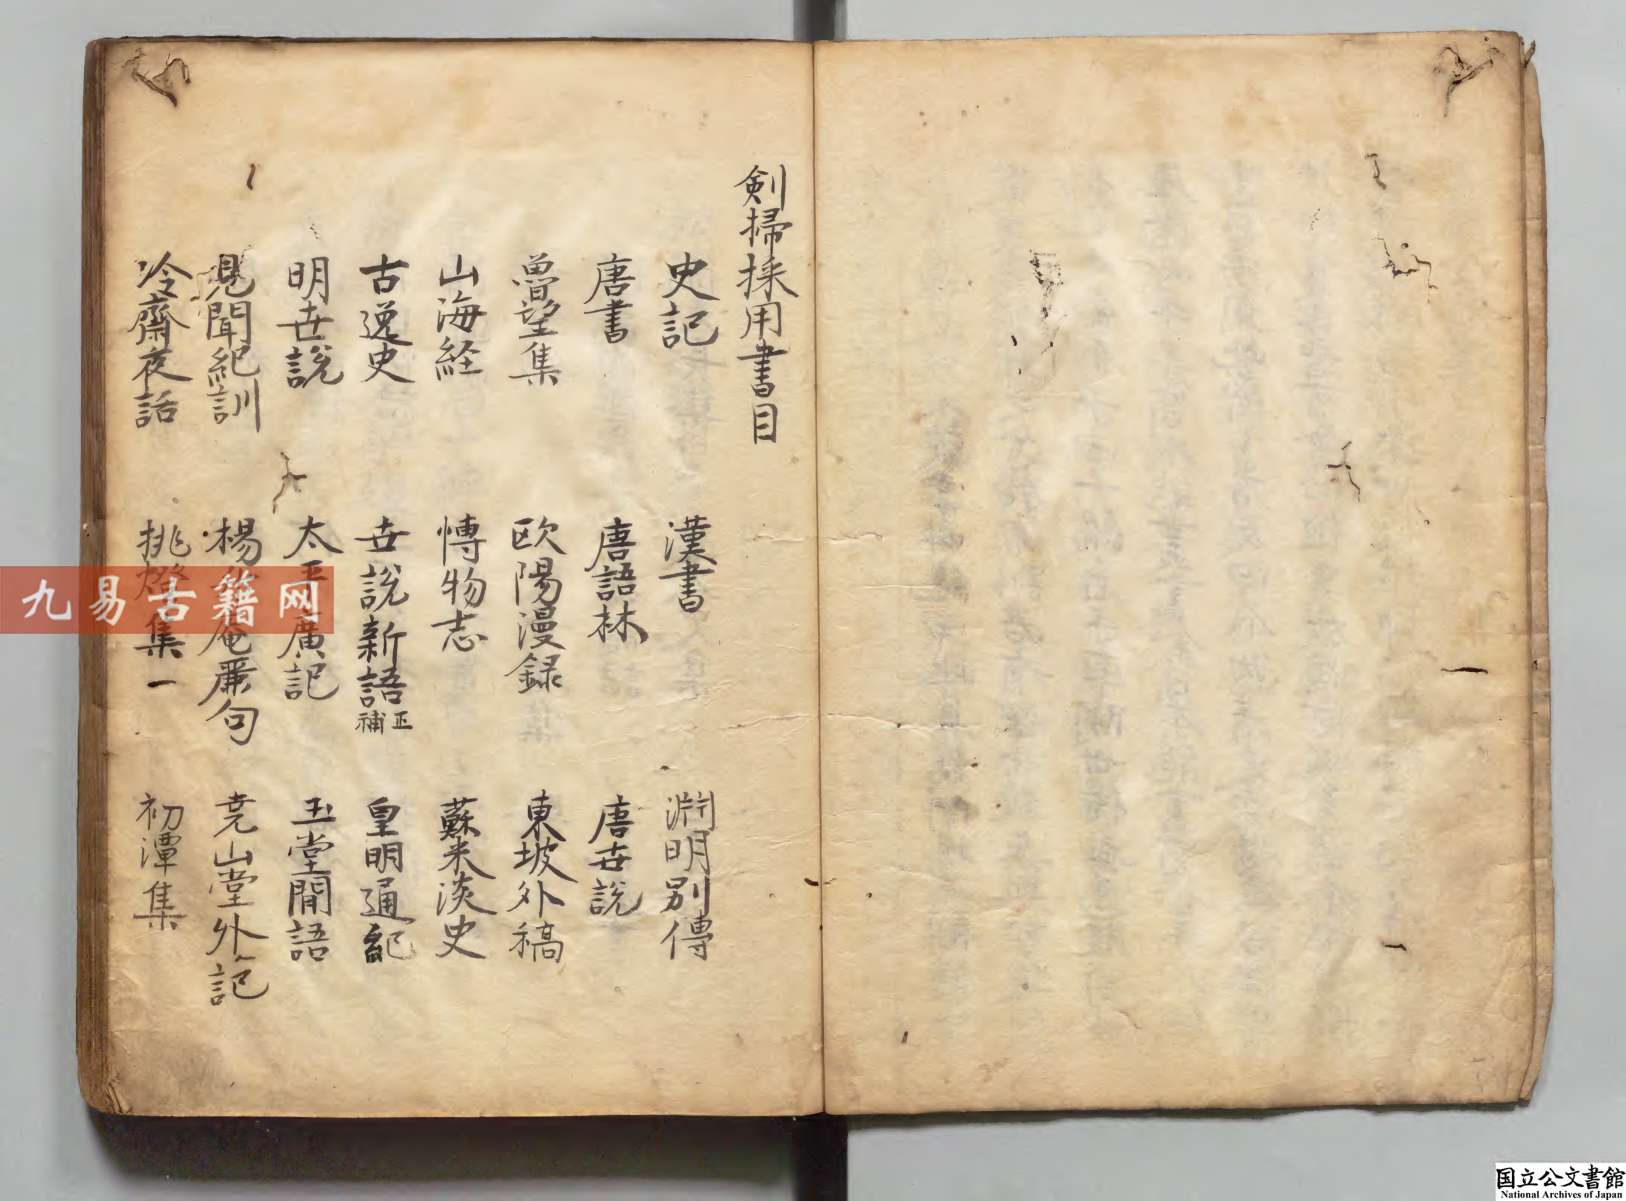 剣掃採用書目
史記 漢書 淵明別傳
唐書 唐語林 唐世說
魯望集 欧陽漫録 東坡外稿
山海経 博物志 蘇米淡史
古逸史 世說新語正補 皇明通紀
明世說 太平廣記 玉堂閒語
見聞紀訓 楊升菴廉句 尭山堂外記
冷齋夜話 挑燈集一 初潭集
九易古籍网
国立公文書館
National Archives of Japan